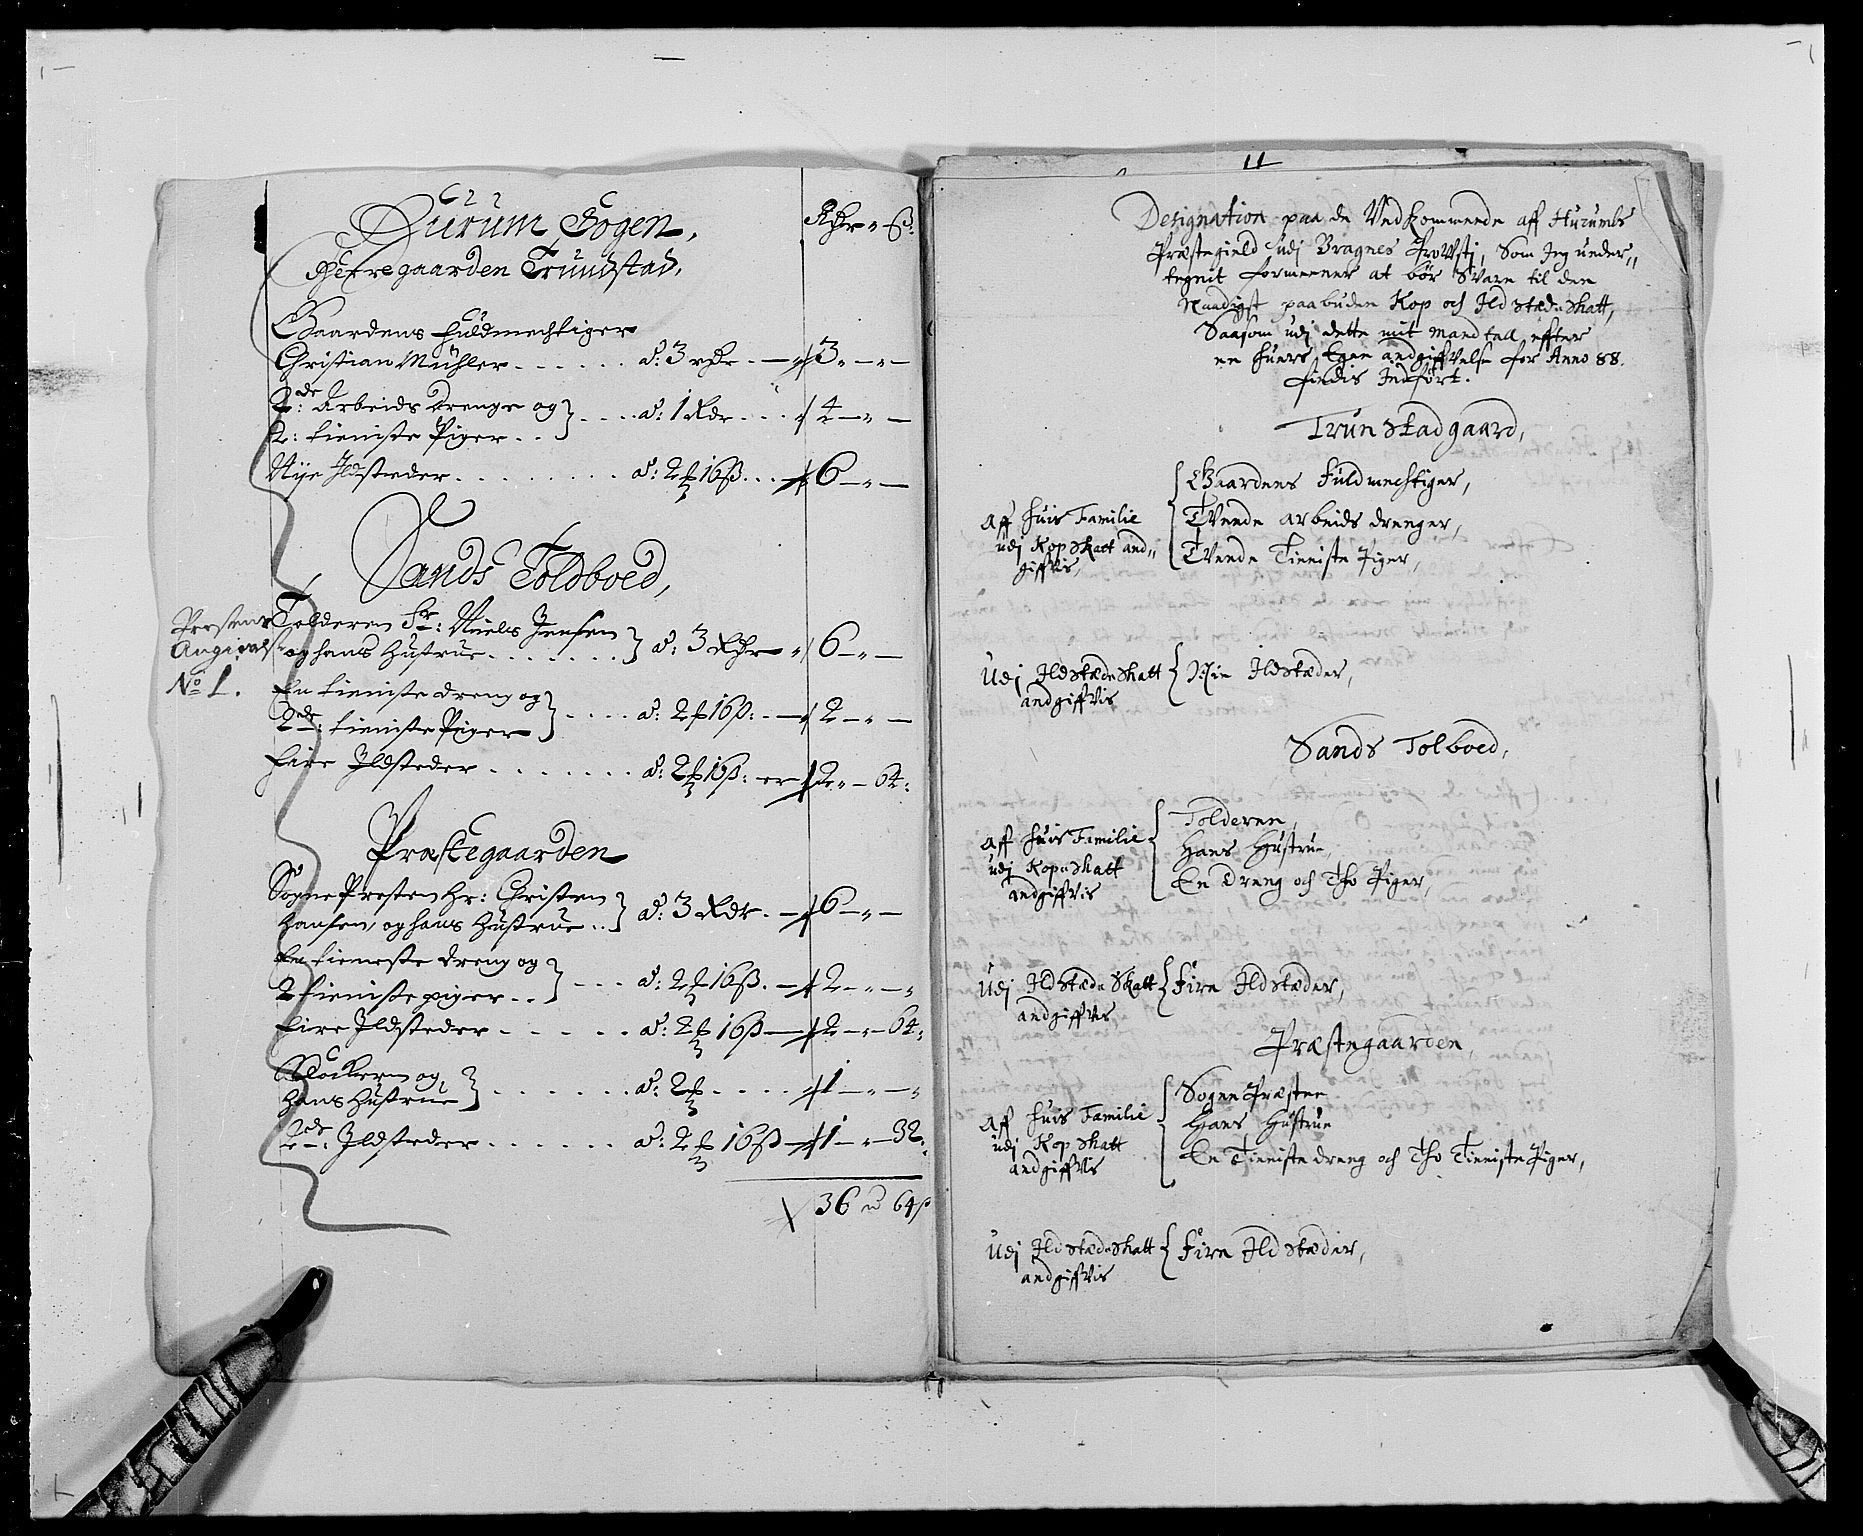 Hurum Sogen,
Rdr " ß:
Herregaarden Trundstad,
Gaardens fuldmechtiger
Christian Mühler . . . . . . á: 3 rdr — 3 — " —
2de: Arbeids drenge og
2: tieniste Piger . . } . . . . á: 1 Rdr . . . 4 — " —
Nije Ildsteder . . . . . . . . . á: 16ß . . . 6 — " —
Sands Toldboed,
Prestens
Angivelse
No 1.
Tolderen Sr: Niels Jensen
og hans Hustrue . . . . . . . } á: 3 Rdr " 6 — " —
En tieniste dreng og
2de: tieniste Piger } . . . . á: 16ß: — 2 — " —
Fire Ildsteder . . . . . . . á: 16ß: er 2 " — 64:
Præstegaarden
Sogne Presten Hr: Christen
Hansen, og hans Hustrue . . } á: 3 Rdr. — 6 — " —
En tieneste dreng og
2 tieniste piger . . } . . . á: 16ß. — 2 — " — "
Fire Ildsteder . . . . . á: 16ß — 2 — " — 64:
Klockeren og
Hans Hustrue } . . . . . . á: . . . . 1 — " — "
2de: Ildsteder . . . . . . á: 16ß — 1 — " — 32:
36 " 64ß
11
Designation paa de Vedkommende aff Hurumbs
Præstegield udj Bragnes Provstj, Som Jeg under,,
tegnit formeener at bør Svare til den
Naadigst paabuden Kop och Ild stæde Skatt,
Saasom udj dette mit Mandtall effter
en huers Egen andgiffvelse for Anno 88.
findis Indført.
Trunstadgaard,
Aff huis Familie
udj Kop Skatt and,,
giffvis,
{ Gaardens fuldmechtiger,
Tvende arbeids drenger,
Tvende Tieniste Piger,
Udj Ildstæde Skatt
andgiffvis
{ Nie Ildstæder,
Sands Tolboed,
Aff huis Familie
udj Kop Skatt
andgiffvis
{ Tolderen,
Hans Hustrue,
En dreng och Tho Piger,
Udj Ildstæde Skatt
andgiffvis
{ Fire Ildstæder,
Præstegaarden,
Aff huis Familie
udj Kop Skatt
andgiffvis
{ Sogne Præsten
Hans Hustrue
En Tieniste dreng och Tho Tieniste Piger,
Udj Ildstæde Skatt
andgiffvis
{ Fire Ildstæder,